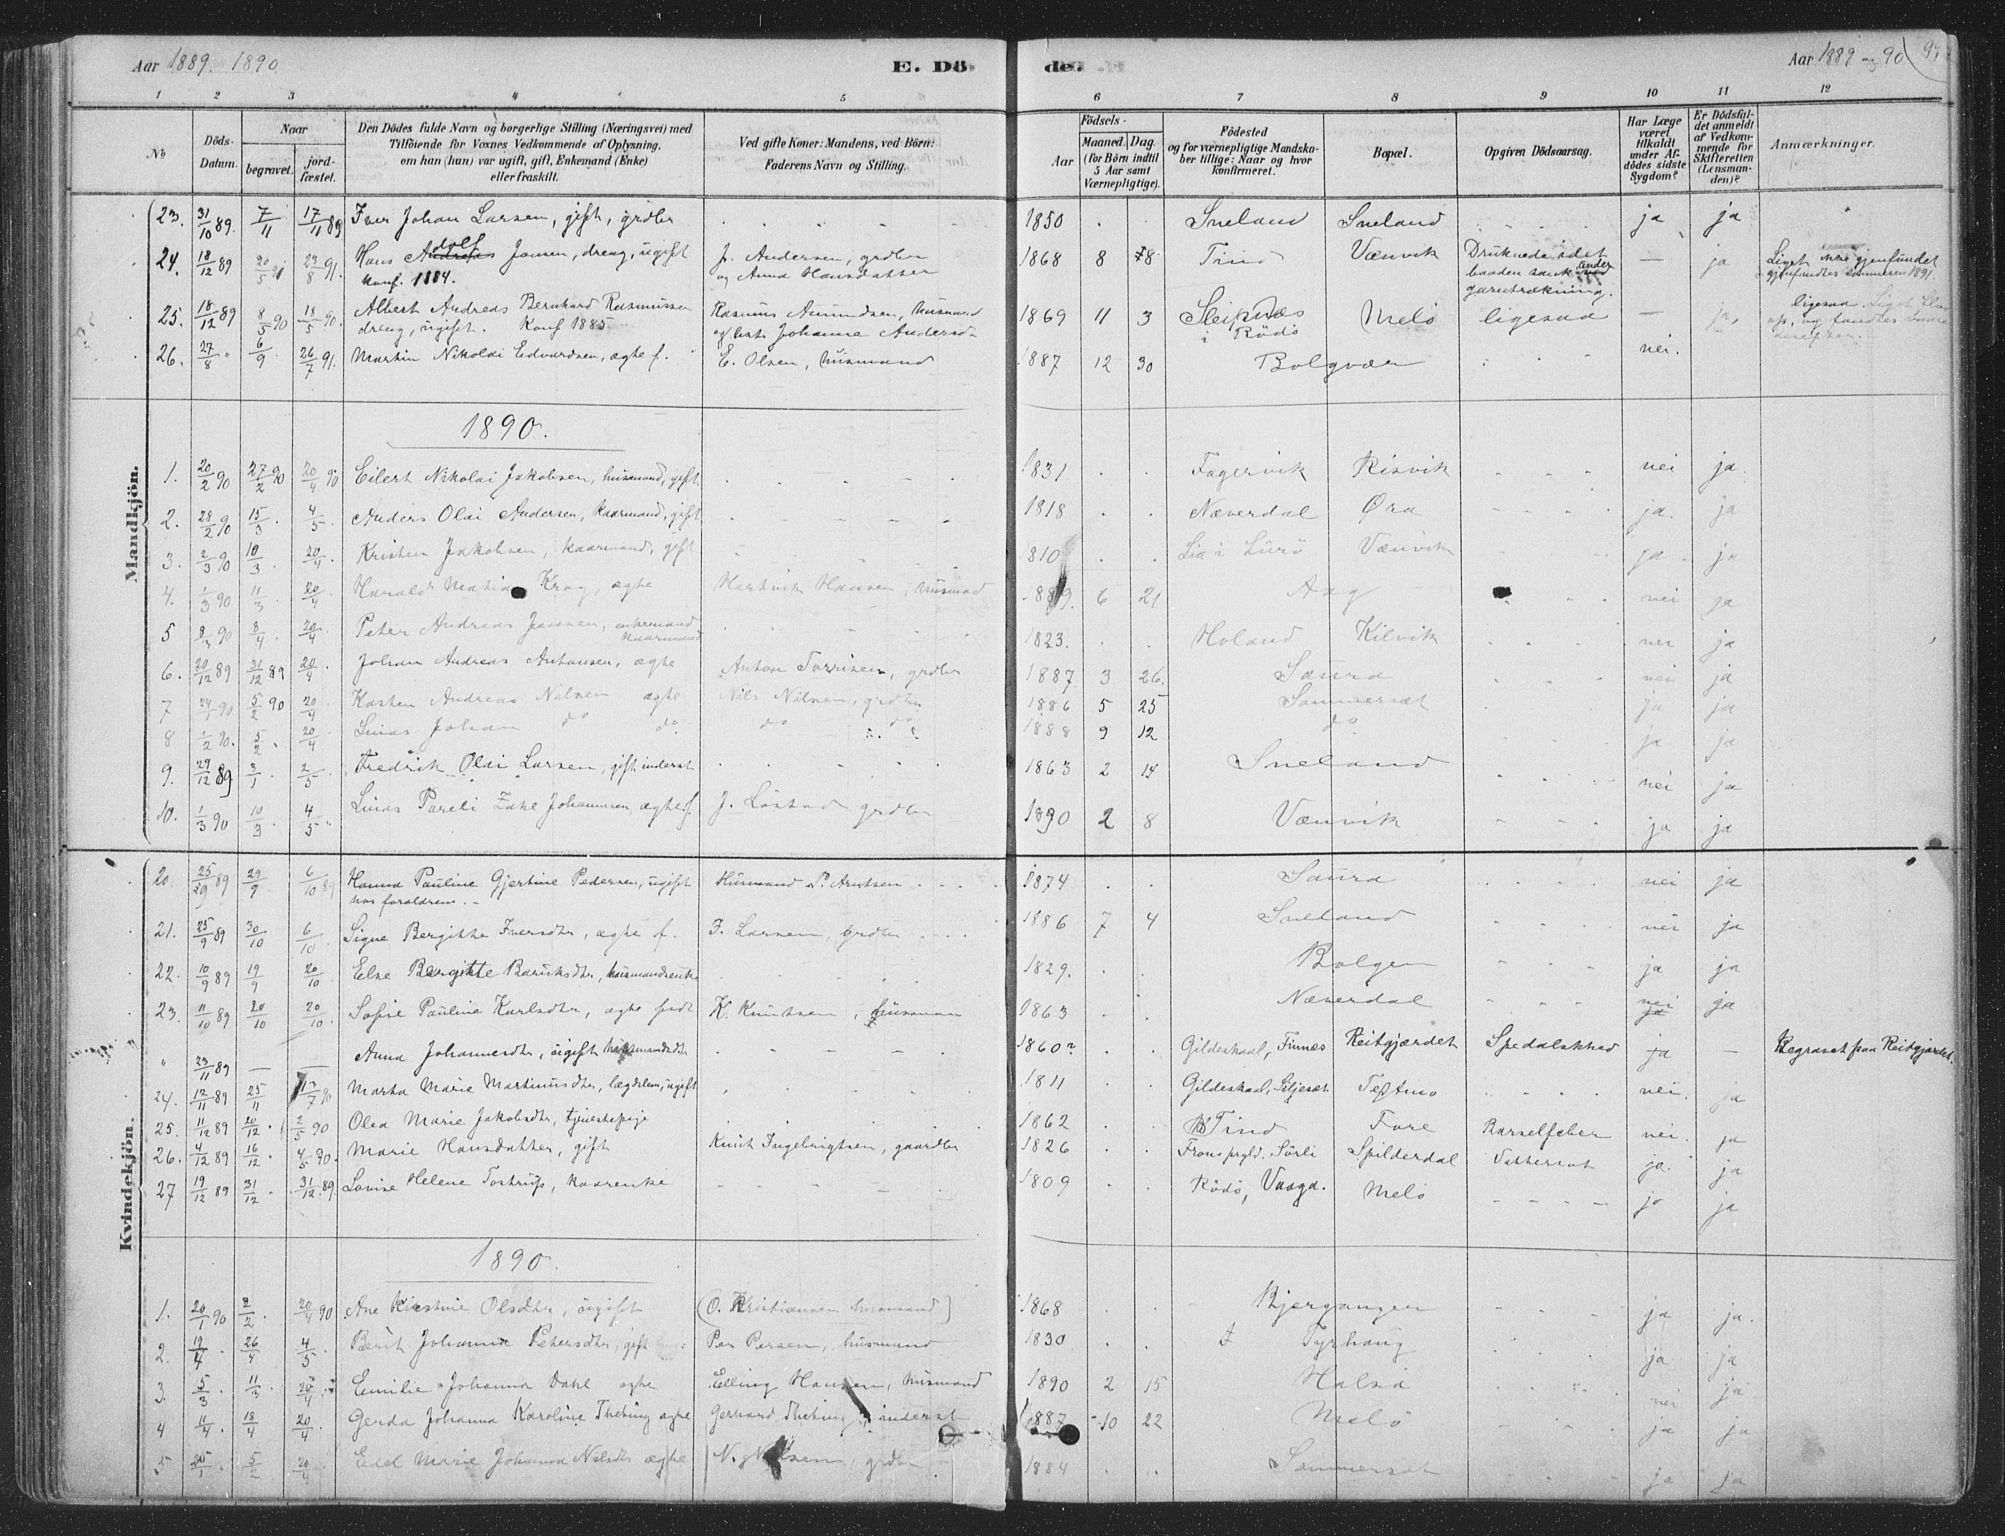 Aar 1889. 1890
E. Döde.
Aar 1889 og 90
1 2 3 4 5 6 7 8 9 10 11 12
No
Döds-Datum.
Naar
begravet.
jordfæstet.
Den Dödes fulde Navn og borgerlige Stilling (Næringsvei) med
Tilföiende for Voxnes Vedkommende af Oplysning,
om han (hun) var ugift, gift, Enkemand (Enke)
eller fraskilt.
Ved gifte Koner: Mandens, ved Börn:
Faderens Navn og Stilling.
Födsels-
Aar
Maaned. Dag.
(for Börn indtil
5 Aar samt
Værnepligtige).
Födested
og for værnepligtige Mandska-
ber tillige: Naar og hvor
konfirmeret.
Bopæl.
Opgiven Dödsaarsag.
Har Læge
været
tilkaldt
under Af-
dödes sidste
Sygdom?
Er Dödsfal-
det anmeldt
af Vedkom-
mende for
Skifteretten
(Lensman-
den)?
Anmærkninger.
Mandkjön.
23. 31/10 89. 7/11 17/11 89 Iver Johan Larsen, gift, grdbr 1850 Sneland Sneland ja ja
24. 18/12 89 20/5 91 23/8 91. Hans Adolf Jansen, dreng, ugift J. Andersen, grdbr 1868 8 Tind Vænvik Druknede idet — ja Liget ikke gjenfundet
konf. 1884. og Anna Hansdatter baaden sank under gjenfundtes sommeren 1891.
garntrækning.
25. 18/12 89 8/5 90 18/5 90. Albert Andreas Bernhard Rasmussen Rasmus Amundsen, husmand 1869 11 3 Sleipnes Melö ligesaa — ja. ligesaa. Liget
dreng, ugift. Konf 1885 Johanne Andersdt i Rödö
26. 27/8 " 6/9 26/7 91. Martin Nikolai Edvardsen, ægte f. E. Olsen, husmand 1887 12 30 Bolgvær nei.
1890.
1. 20/2 90 27/2 90 20/4 90 Eilert Nikolai Jakobsen, husmand, gift 1831 Fagervik Risvik nei ja.
2. 28/2 90 15/3 4/5 Anders Olai Andersen, kaarmand, gift 1818 Næverdal Øra ja. ja
3. 2/3 90 10/3 20/4 Kristen Jakobsen, kaarmand, gift 1810 Lia i Lurö Vænvik ja ja
4. 1/3 90 11/3 20/4 Harald Mathias Krog, ægte Hartvik Hansen, husmand 1889. 6 21 Aag nei ja
5 8/3 90 8/4 20/4 Peter Andreas Jansen, enkemand kaarmand 1823. Holand Kilvik nei ja
6. 20/12 89 31/12 89 20/4 Johan Andreas Antonsen, ægte Anton Torrisen, grdbr 1887 3 26. Saura nei ja
7 24/1 90 5/2 90 20/4 Karsten Andreas Nilsen ægte Nils Nilsen, grdbr 1886 5 25 Sommerset ja ja
8 1/2 90. 5/2 20/4 Linas Johan do do do do 1888 9 12 do ja ja
9. 29/12 89 3/1 2/5 Fredrik Olai Larsen, gift inderst 1863 2 14 Sneland nei ja
10. 1/3 90 10/3 4/5 Linas Pareli Johannsen ægte f. J. Löstad grdbr 1890 2 8 Vænvik ja ja
Kvindekjön.
20. 89 29/9 6/10 89 Hanna Pauline Gjertine Pedersen, ugift Husmand P. Arntsen 1874 Saura nei ja
hos forældrene.
21. 25/9 89 30/10 6/10 Signe Bergitte Iversdtr, ægte f. I. Larsen, grdbr 1886 7 4 Sneland nei ja
22. 10/9 89 19/9 20/10 Else Bergitte Baruksdtr, husmandsenke 1829. Bolgen ja ja
23. 11/10 89 20/10 20/10. Sofie Pauline Karlsdtr, ægte født K. Knutsen, husman 1863 Næverdal nei ja
" 23/11 89 — — Anna Johannesdtr, ugift husmandsdtr 1860? Gildeskaal, Finnes Reitgjærdet Spedalskhed ja — Begravet fra Reitgjærdet.
24. 12/11 89 25/11 13/7 90 Marta Marie Martinusdtr, lægdslem, ugift 1811 Gildeskaal, Siljeset nei. ja
25. 11/12 89 20/12 2/5 90 Olea Marie Jakobsdtr, tjenestepige 1862 Tind Fore Barselfeber nei. ja
26. 4/12 89 16/12 4/5 90. Marie Hansdatter, gift Knut Ingebrigtsen, gaardbr 1826 Spilderdal Vattersot ja. ja
27 19/12 89 31/12 31/12 89. Lovise Helene Tostrup, kaarenke 1809 Rödö, Vaaga. Melö ja ja
1890.
1. 20/1 90 2/2 20/4 90 Ane Kirstine Olsdtr, ugift (O. Kristiansen husmand) 1868 Bjergangen ja ja.
2. 19/4 26/4 4/5 Berit Johanna Petersdtr, gift Per Persen, husmand 1830 ja ja
3. 5/3 11/3 20/4 Emilie Johanna Dahl ægte Elling Hansen, husmand 1890 2 15 Halsa nei ja
4 11/4 18/4 20/4 Gerda Johanna Karoline Theting ægte Gerhard Theting, inderst 1887 10 22 Melö ja ja
5 5/2 20/4 Edel Marie Johanna Nilsdtr ægte N. Nilsen, grdbr 1884 Sommerset ja ja